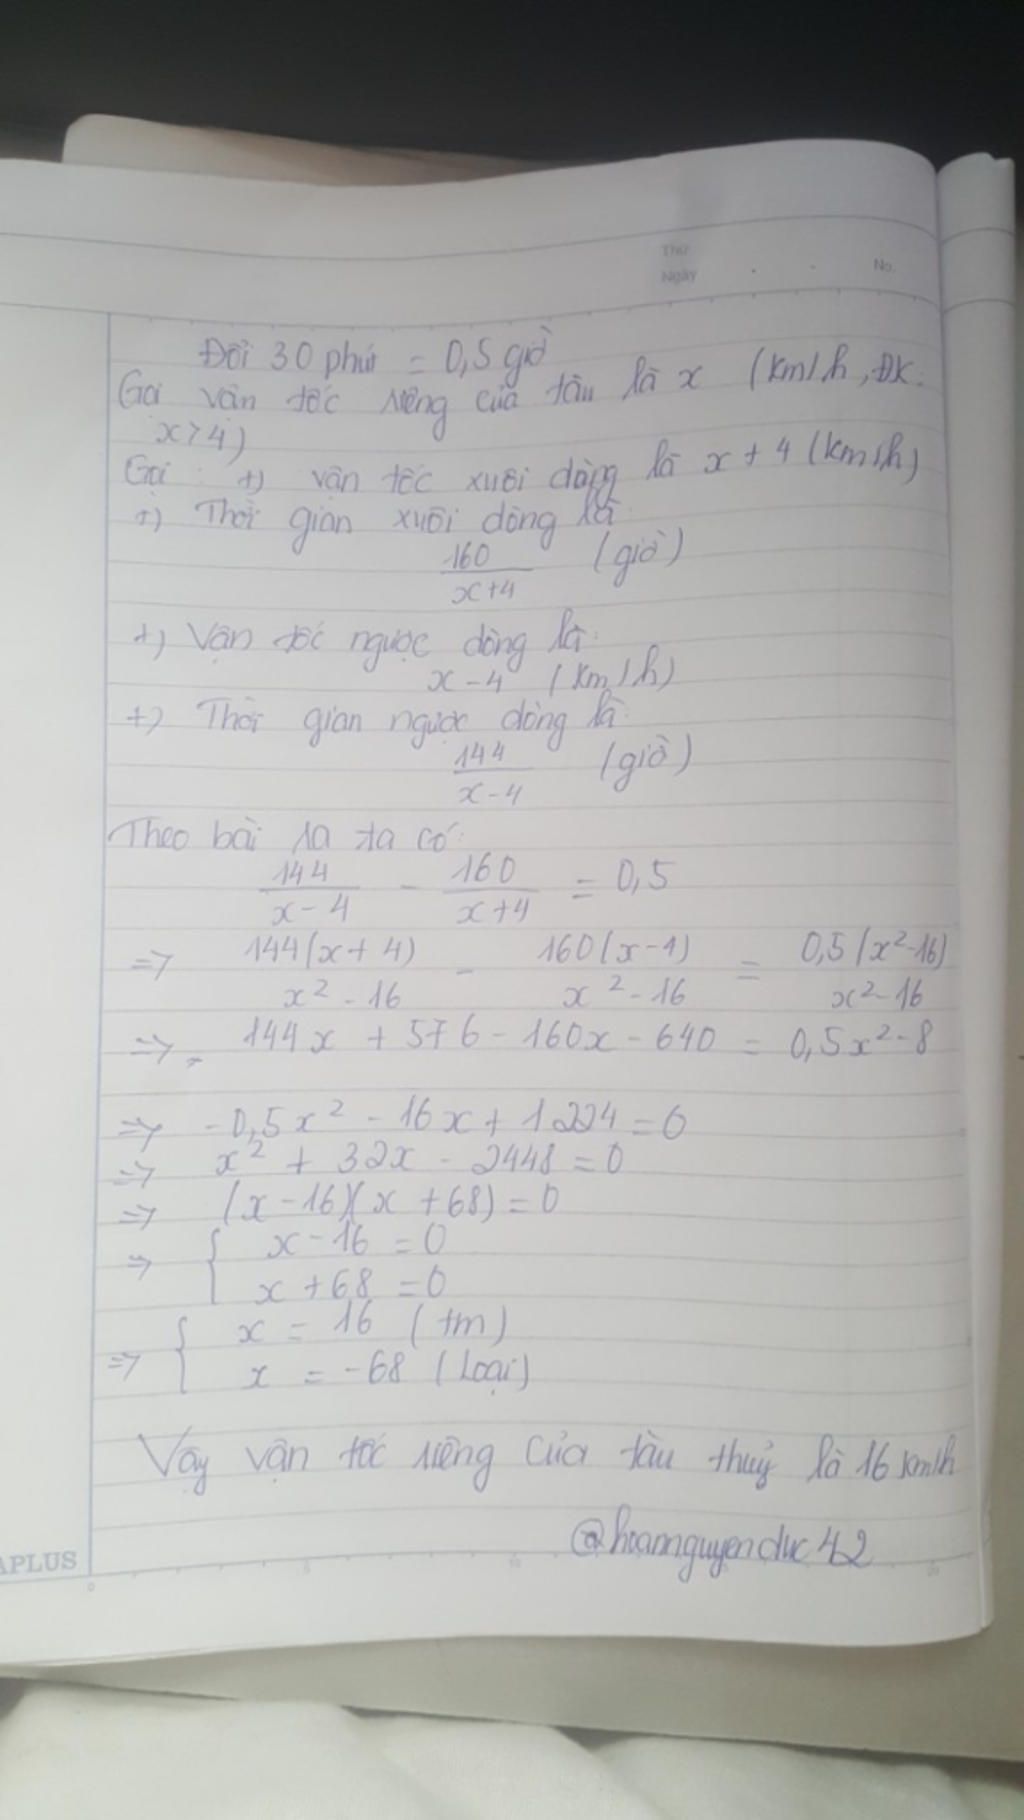 Thứ
Ngày . . No.
Đổi 30 phút = 0,5 giờ
Gọi vận tốc riêng của tàu là x (km/h, ĐK:
x>4)
Gọi: +) vận tốc xuôi dòng là x + 4 (km/h)
+) Thời gian xuôi dòng là:
160/(x+4) (giờ)
+) Vận tốc ngược dòng là:
x - 4 (km/h)
+) Thời gian ngược dòng là:
144/(x-4) (giờ)
Theo bài ra ta có:
144/(x-4) - 160/(x+4) = 0,5
=> 144(x+4)/(x²-16) - 160(x-4)/(x²-16) = 0,5(x²-16)/(x²-16)
=> 144x + 576 - 160x - 640 = 0,5x² - 8
=> -0,5x² - 16x + 1224 = 0
=> x² + 32x - 2448 = 0
=> (x-16)(x+68) = 0
=> { x - 16 = 0
x + 68 = 0
=> { x = 16 (tm)
x = -68 (Loại)
Vậy vận tốc riêng của tàu thuỷ là 16 km/h
@hoamnguyenduc42
APLUS
0 5 10 20